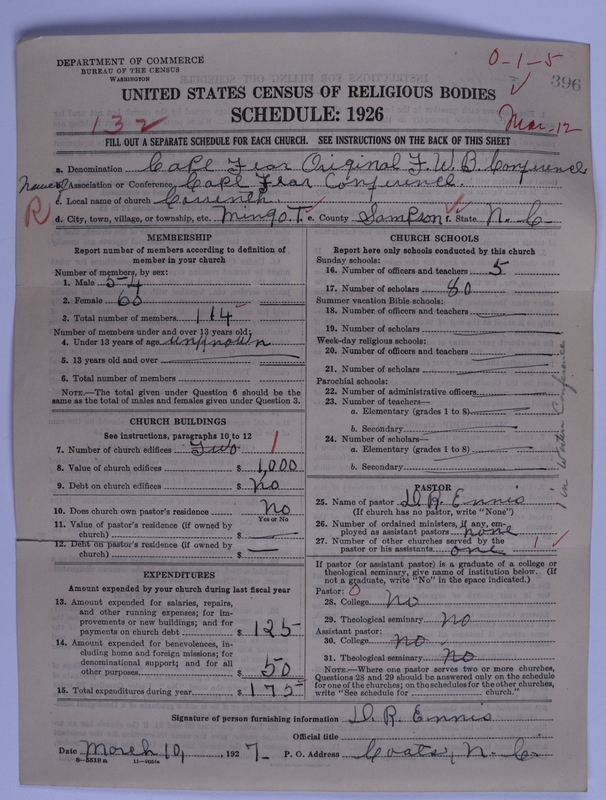 DEPARTMENT OF COMMERCE
BUREAU OF THE CENSUS
WASHINGTON
0-1-5
396
UNITED STATES CENSUS OF RELIGIOUS BODIES
SCHEDULE: 1926
132
Mar-12
FILL OUT A SEPARATE SCHEDULE FOR EACH CHURCH. SEE INSTRUCTIONS ON THE BACK OF THIS SHEET
a. Denomination Cape Fear Original F. W. B. Conference
Name of
b. Association or Conference, Cape Fear Conference.
R
c. Local name of church Corinth
d. City, town, village, or township, etc. Mingo. T. e. County Sampson f. State N. C.
MEMBERSHIP
Report number of members according to definition of
member in your church
Number of members, by sex:
1. Male 54
2. Female 60
3. Total number of members 114
Number of members under and over 13 years old:
4. Under 13 years of age unknown
5. 13 years old and over
6. Total number of members
NOTE.—The total given under Question 6 should be the
same as the total of males and females given under Question 3.
CHURCH BUILDINGS
See instructions, paragraphs 10 to 12
7. Number of church edifices Two 1
8. Value of church edifices $ 1,000
9. Debt on church edifices $ No
10. Does church own pastor's residence No
Yes or No
11. Value of pastor's residence (if owned by
church) $
12. Debt on pastor's residence (if owned by
church) $
EXPENDITURES
Amount expended by your church during last fiscal year
13. Amount expended for salaries, repairs,
and other running expenses; for im-
provements or new buildings; and for
payments on church debt $ 125
14. Amount expended for benevolences, in-
cluding home and foreign missions; for
denominational support; and for all
other purposes $ 50
15. Total expenditures during year $ 175
CHURCH SCHOOLS
Report here only schools conducted by this church
Sunday schools:
16. Number of officers and teachers 5
17. Number of scholars 80
Summer vacation Bible schools:
18. Number of officers and teachers
19. Number of scholars
Week-day religious schools:
20. Number of officers and teachers
21. Number of scholars
Parochial schools:
22. Number of administrative officers
23. Number of teachers—
a. Elementary (grades 1 to 8)
b. Secondary
24. Number of scholars—
a. Elementary (grades 1 to 8)
b. Secondary
PASTOR
25. Name of pastor D. R. Ennis
(If church has no pastor, write "None")
26. Number of ordained ministers, if any, em-
ployed as assistant pastors none
27. Number of other churches served by the
pastor or his assistants one 1
If pastor (or assistant pastor) is a graduate of a college or
theological seminary, give name of institution below. (If
not a graduate, write "No" in the space indicated.)
Pastor: 0
28. College No
29. Theological seminary No
Assistant pastor:
30. College No
31. Theological seminary No
NOTE.—Where one pastor serves two or more churches,
Questions 28 and 29 should be answered only on the schedule
for one of the churches; on the schedules for the other churches,
write "See schedule for church."
1 in Western Conference
Signature of person furnishing information D. R. Ennis
Official title
Date March 10, 1927 P. O. Address Coats, N. C.